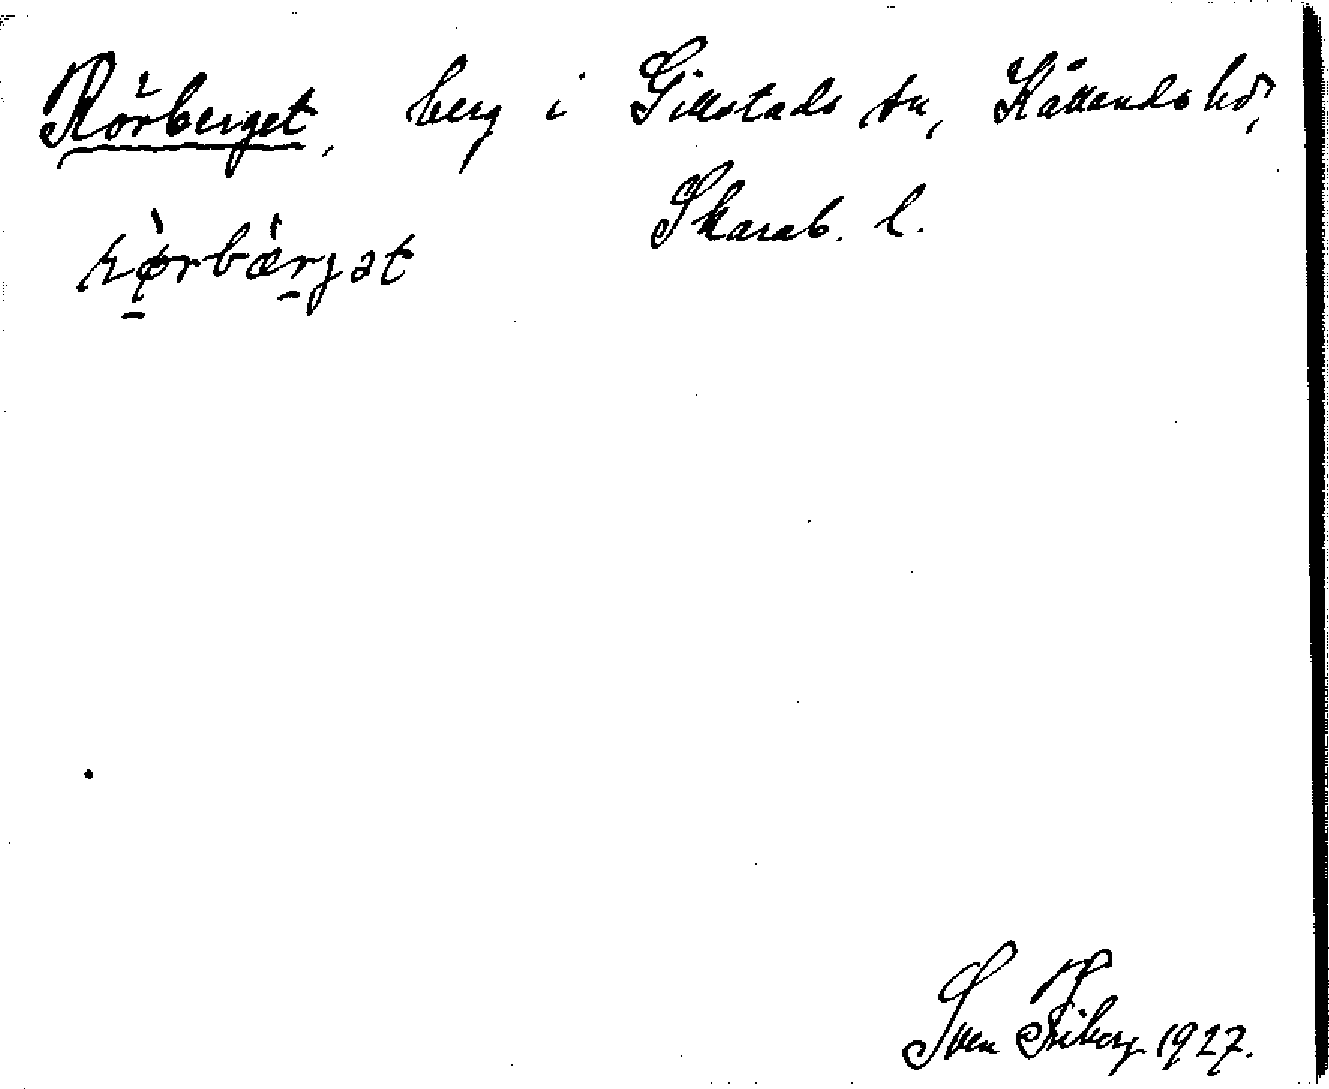 Rörberget, berg i Gillstads sn, Kållands hd,
Skarab. l.
Sven Friberg 1927.